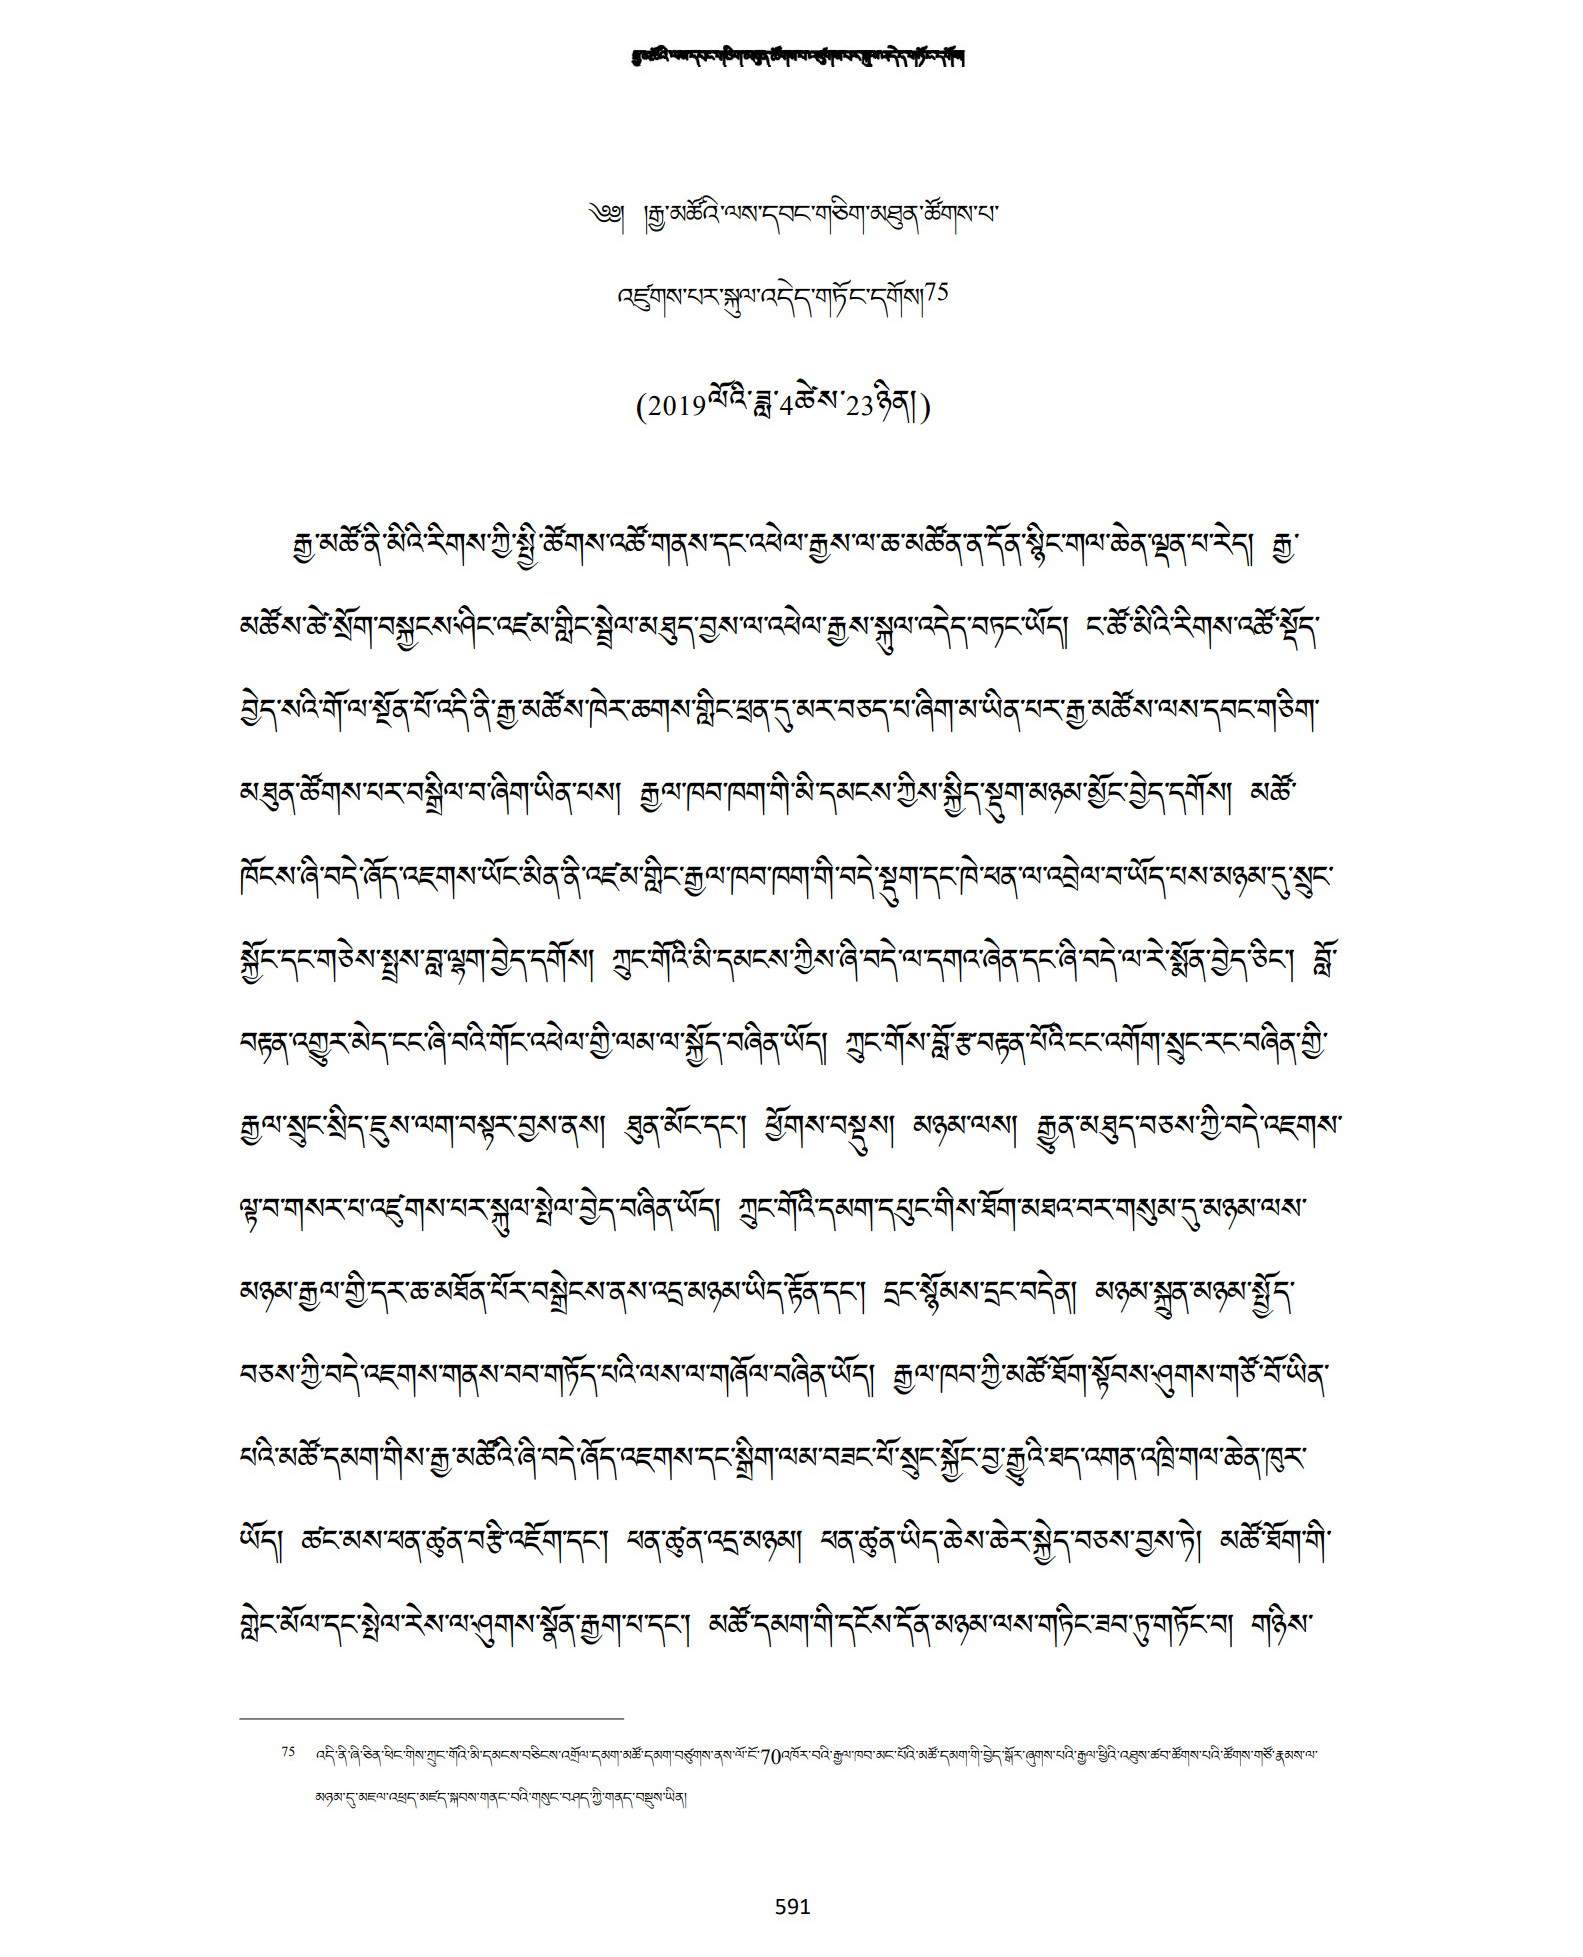 རྒྱ་མཚོའི་ལས་དབང་གཅིག་མཐུན་ཚོགས་པ་འཛུགས་པར་སྐུལ་འདེད་གཏོང་དགོས།
༄༅། །རྒྱ་མཚོའི་ལས་དབང་གཅིག་མཐུན་ཚོགས་པ་
འཛུགས་པར་སྐུལ་འདེད་གཏོང་དགོས།75
(2019ལོའི་ཟླ་4ཚེས་23ཉིན།)
རྒྱ་མཚོ་ནི་མིའི་རིགས་ཀྱི་སྤྱི་ཚོགས་འཚོ་གནས་དང་འཕེལ་རྒྱས་ལ་ཆ་མཚོན་ན་དོན་སྙིང་གལ་ཆེན་ལྡན་པ་རེད། རྒྱ་
མཚོས་ཚེ་སྲོག་བསྐྱངས་ཤིང་འཛམ་གླིང་སྦྲེལ་མཐུད་བྱས་ལ་འཕེལ་རྒྱས་སྐུལ་འདེད་བཏང་ཡོད། ང་ཚོ་མིའི་རིགས་འཚོ་སྡོད་
བྱེད་སའི་གོ་ལ་སྔོན་པོ་འདི་ནི་རྒྱ་མཚོས་ཁེར་ཆགས་གླིང་ཕྲན་དུ་མར་བཅད་པ་ཞིག་མ་ཡིན་པར་རྒྱ་མཚོས་ལས་དབང་གཅིག་
མཐུན་ཚོགས་པར་བསྒྲིལ་བ་ཞིག་ཡིན་པས། རྒྱལ་ཁབ་ཁག་གི་མི་དམངས་ཀྱིས་སྐྱིད་སྡུག་མཉམ་མྱོང་བྱེད་དགོས། མཚོ་
ཁོངས་ཞི་བདེ་ཞོད་འཇགས་ཡོང་མིན་ནི་འཛམ་གླིང་རྒྱལ་ཁབ་ཁག་གི་བདེ་སྡུག་དང་ཁེ་ཕན་ལ་འབྲེལ་བ་ཡོད་པས་མཉམ་དུ་སྲུང་
སྐྱོང་དང་གཅེས་སྤྲས་བླ་ལྷག་བྱེད་དགོས། ཀྲུང་གོའི་མི་དམངས་ཀྱིས་ཞི་བདེ་ལ་དགའ་ཞེན་དང་ཞི་བདེ་ལ་རེ་སྨོན་བྱེད་ཅིང་། བློ་
བརྟན་འགྱུར་མེད་ངང་ཞི་བའི་གོང་འཕེལ་གྱི་ལམ་ལ་སྐྱོད་བཞིན་ཡོད། ཀྲུང་གོས་བློ་རྩ་བརྟན་པོའི་ངང་འགོག་སྲུང་རང་བཞིན་གྱི་
རྒྱལ་སྲུང་སྲིད་ཇུས་ལག་བསྟར་བྱས་ནས། ཐུན་མོང་དང་། ཕྱོགས་བསྡུས། མཉམ་ལས། རྒྱུན་མཐུད་བཅས་ཀྱི་བདེ་འཇགས་
ལྟ་བ་གསར་པ་འཛུགས་པར་སྐུལ་སྤེལ་བྱེད་བཞིན་ཡོད། ཀྲུང་གོའི་དམག་དཔུང་གིས་ཐོག་མཐའ་བར་གསུམ་དུ་མཉམ་ལས་
མཉམ་རྒྱལ་གྱི་དར་ཆ་མཐོན་པོར་བསྒྲེངས་ནས་འདྲ་མཉམ་ཡིད་རྟོན་དང་། དྲང་སྙོམས་དྲང་བདེན། མཉམ་སྐྲུན་མཉམ་སྤྱོད་
བཅས་ཀྱི་བདེ་འཇགས་གནས་བབ་གཏོད་པའི་ལས་ལ་གཞོལ་བཞིན་ཡོད། རྒྱལ་ཁབ་ཀྱི་མཚོ་ཐོག་སྟོབས་ཤུགས་གཙོ་བོ་ཡིན་
པའི་མཚོ་དམག་གིས་རྒྱ་མཚོའི་ཞི་བདེ་ཞོད་འཇགས་དང་སྒྲིག་ལམ་བཟང་པོ་སྲུང་སྐྱོང་བྱ་རྒྱུའི་ཐད་འགན་འཁྲི་གལ་ཆེན་ཁུར་
ཡོད། ཚང་མས་ཕན་ཚུན་བརྩི་འཇོག་དང་། ཕན་ཚུན་འདྲ་མཉམ། ཕན་ཚུན་ཡིད་ཆེས་ཆེར་སྐྱེད་བཅས་བྱས་ཏེ། མཚོ་ཐོག་གི་
གླེང་མོལ་དང་སྤེལ་རེས་ལ་ཤུགས་སྣོན་རྒྱག་པ་དང་། མཚོ་དམག་གི་དངོས་དོན་མཉམ་ལས་གཏིང་ཟབ་ཏུ་གཏོང་བ། གཉིས་
75 འདི་ནི་ཞི་ཅིན་ཕིང་གིས་ཀྲུང་གོའི་མི་དམངས་བཅིངས་འགྲོལ་དམག་མཚོ་དམག་བཙུགས་ནས་ལོ་ངོ་70འཁོར་བའི་རྒྱལ་ཁབ་མང་པོའི་མཚོ་དམག་གི་བྱེད་སྒོར་ཞུགས་པའི་རྒྱལ་ཕྱིའི་འཐུས་ཚབ་ཚོགས་པའི་ཚོགས་གཙོ་རྣམས་ལ་
མཉམ་དུ་མཇལ་འཕྲད་མཛད་སྐབས་གནང་བའི་གསུང་བཤད་ཀྱི་གནད་བསྡུས་ཡིན།
591